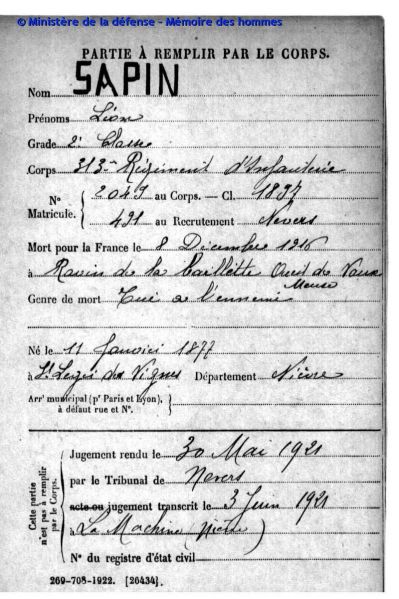 © Ministère de la défense - Mémoire des hommes
PARTIE À REMPLIR PAR LE CORPS.
Nom SAPIN
Prénoms Léon
Grade 2e Classe
Corps 313me Régiment d'Infanterie
N° Matricule. { 2049 au Corps. — Cl. 1897
491 au Recrutement Nevers
Mort pour la France le 8 Décembre 1916
à Ravin de la Caillette Ouest de Vaux
Meuse
Genre de mort Tué à l'ennemi
Né le 11 Janvier 1877
à St Leger des Vignes Département Nièvre
Arrt municipal (pr Paris et Lyon),
à défaut rue et N°.
Cette partie n'est pas à remplir par le Corps.
Jugement rendu le 30 Mai 1921
par le Tribunal de Nevers
acte ou jugement transcrit le 3 Juin 1921
à La Machine (Nièvre)
N° du registre d'état civil
269-708-1922. [26434].